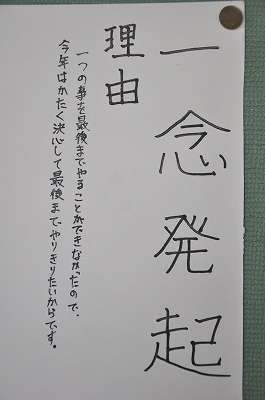 一念発起
理由
一つの事を最後までやることができなかったので、
今年はかたく決心して最後までやりきりたいからです。